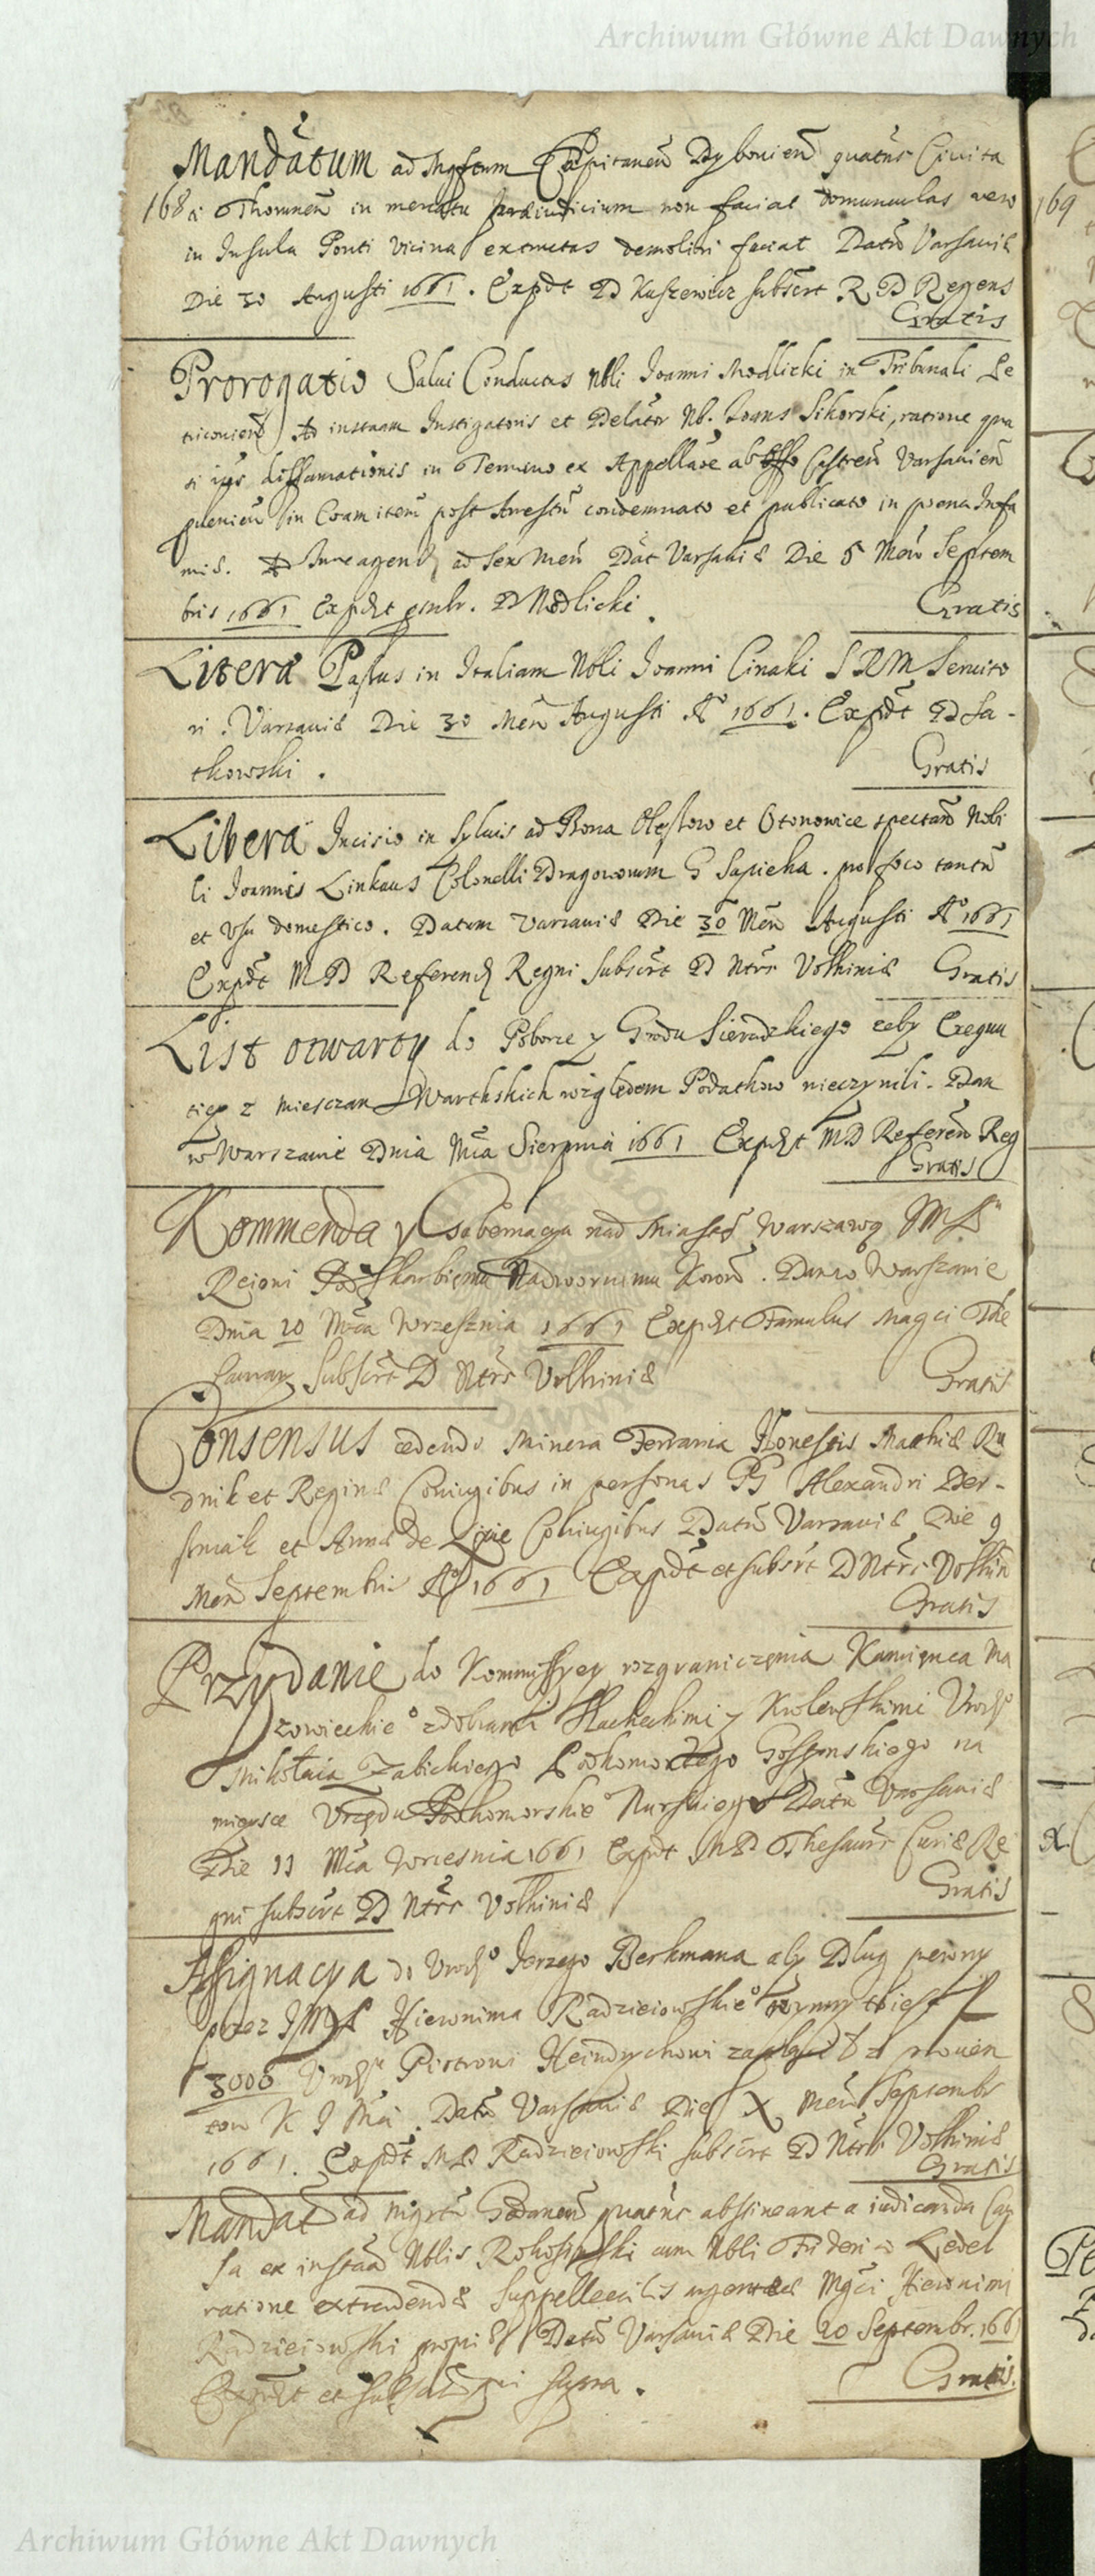 Archiwum Główne Akt Dawnych
Mandatum ad Mgfcum Capitaneu Dyboviens quatnr Civita
168 ti Thorunen in mercatu praeiudicium non faciat domunculas vero
in Insula Ponti vicina extructas demoliri faciat Datu Varsaviæ
Die 30 Augusti 1661. Expdt D Kuszewicz subscrt R D Regens
Gratis
Prorogatio Salvi Conductus Nbli Joanni Modlicki in Tribunali Pe
triconien Ad instaam Instigatoris et Delator Nb. Joans Sikorski, ratione
diffamationis in Termino ex Appellaoe ab Castren Varsavien
in Coram item post Arestu condemnato et publicato in poena Infa
mis. ad sex Men Dat Varsaviæ Die 5 Men Septem
bris 1661 Expdt D Modlicki
Gratis
Litera Passus in Italiam Nbli Joanni Cinaki S R M Servito
ri. Varsaviæ Die 30 Men Augusti Ao 1661. Expdt D Sa-
tkowski.
Gratis
Libera Incisio in Sylvis ad Bona Olęslow et Otonowice spectan Nobi
li Joannis Linkaus Colonelli Dragonorum G Sapieha. pro foco tantu
et usu domestico. Datum Varsaviæ Die 30 Men Augusti Ao 1661
Expdt M D Referend Regni subscrt D Ntrr Volhiniæ Gratis
List otwarty do Poborce y Grodu Sieradzkiego zeby Exequu
tiey z mieszczan Warthskich względem Podatkow nieczynili. Dan
w Warszawie Dnia Mca Sierpnia 1661 Expdt M D Referen Reg
Gratis
Kommenda y Gubernacya nad Miastę Warszawą JM Pu
Reioni Podskarbięmu Nadwornemu Koron. Dan w Warszawie
Dnia 10 Mca Wrzesznia 1661 Expdt Famulus Magci The
saurar Subscrt D Ntrr Volhiniæ Gratis
Consensus cedendi Minera Ferraria Honestis Mathiæ Ru
dnik et Reginæ Coniugibus in personas G Alexandri Der-
sniak et Annæ de Coniugibus Datu Varsaviæ Die 9
Men Septembris Ao 1661 Expdt et subscrt D Ntrr Volhin
Gratis
Przydanie do Kommissyey rozgraniczenia Kamięnca Ma
zowieckieo zdobrami Slacheckimi y Krolewskimi Urodzo
Mikołaia Zabickiego Podkomorzego Gostynskiego na
mieysce Urzędu Podkomorskieo Nurskiego Datu Varsaviæ
Die 11 Mca Wrzesnia 1661 Expdt M D Thesaurr Curiæ Re
gni subscrt D Ntrr Volhiniæ
Gratis
Assignacya do Urodzo Jerzego Berkmana aby Dlug pewny
przez JM P Hieronima Radzieiowskieo
3000 Urodzu Piotrowi Heindychowi zapłacił z prowen
tow K J Mci. Datu Varsaviæ Die X Men Septembr
1661. Expdt M D Radzieiowski subscrt D Ntrr Volhiniæ
Gratis
Mandat ad Mgrtu Gedanen quatnr abstineant a iudicanda Cau
sa ex instaa Nblis Rokoszowski cum Nbli Friderico Ledel
ratione extradendæ Suppellectilis Mgci Hieronimi
Radzieiowski Datu Varsaviæ Die 20 Septembr. 1661
Expdt et supra.
Gratis.
169
Archiwum Główne Akt Dawnych